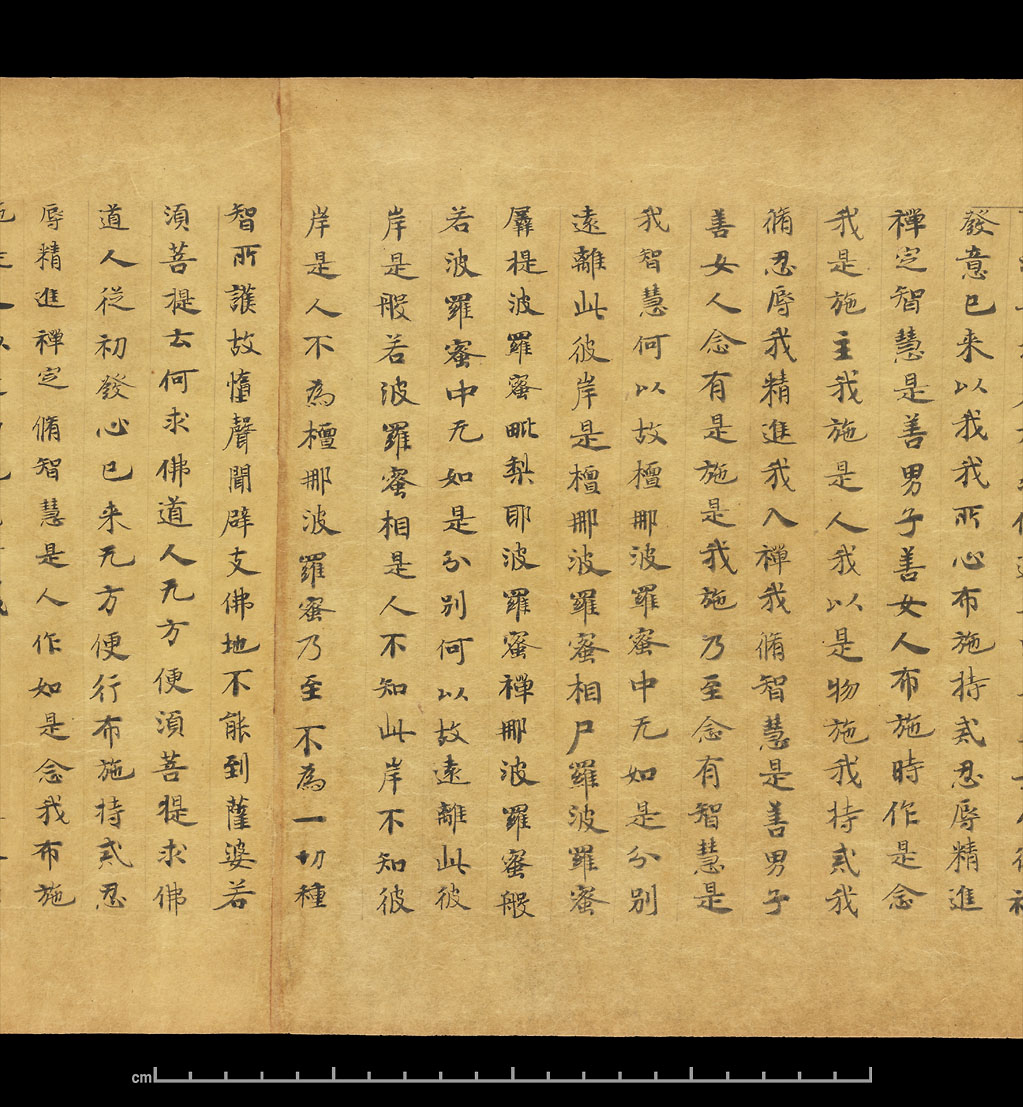 發意已来以我我所心布施持惑忍辱精進
禪定智慧是善男子善女人布施時作是念
我是施主我施是人我以是物施我持惑我
脩忍辱我精進我入禪我脩智慧是善男子
善女人念有是施是我施乃至念有智慧是
我智慧何以故檀那波羅蜜中无如是分別
遠離此彼岸是檀那波羅蜜相尸羅波羅蜜
羼提波羅蜜毗梨耶波羅蜜禪那波羅蜜般
若波羅蜜中无如是分別何以故遠離此彼
岸是般若波羅蜜相是人不知此岸不知彼
岸是人不為檀那波羅蜜乃至不為一切種
智所護故墮聲聞辟支佛地不能到薩婆若
須菩提云何求佛道人无方便須菩提求佛
道人從初發心已来无方便行布施持惑忍
辱精進禪定脩智慧是人作如是念我布施